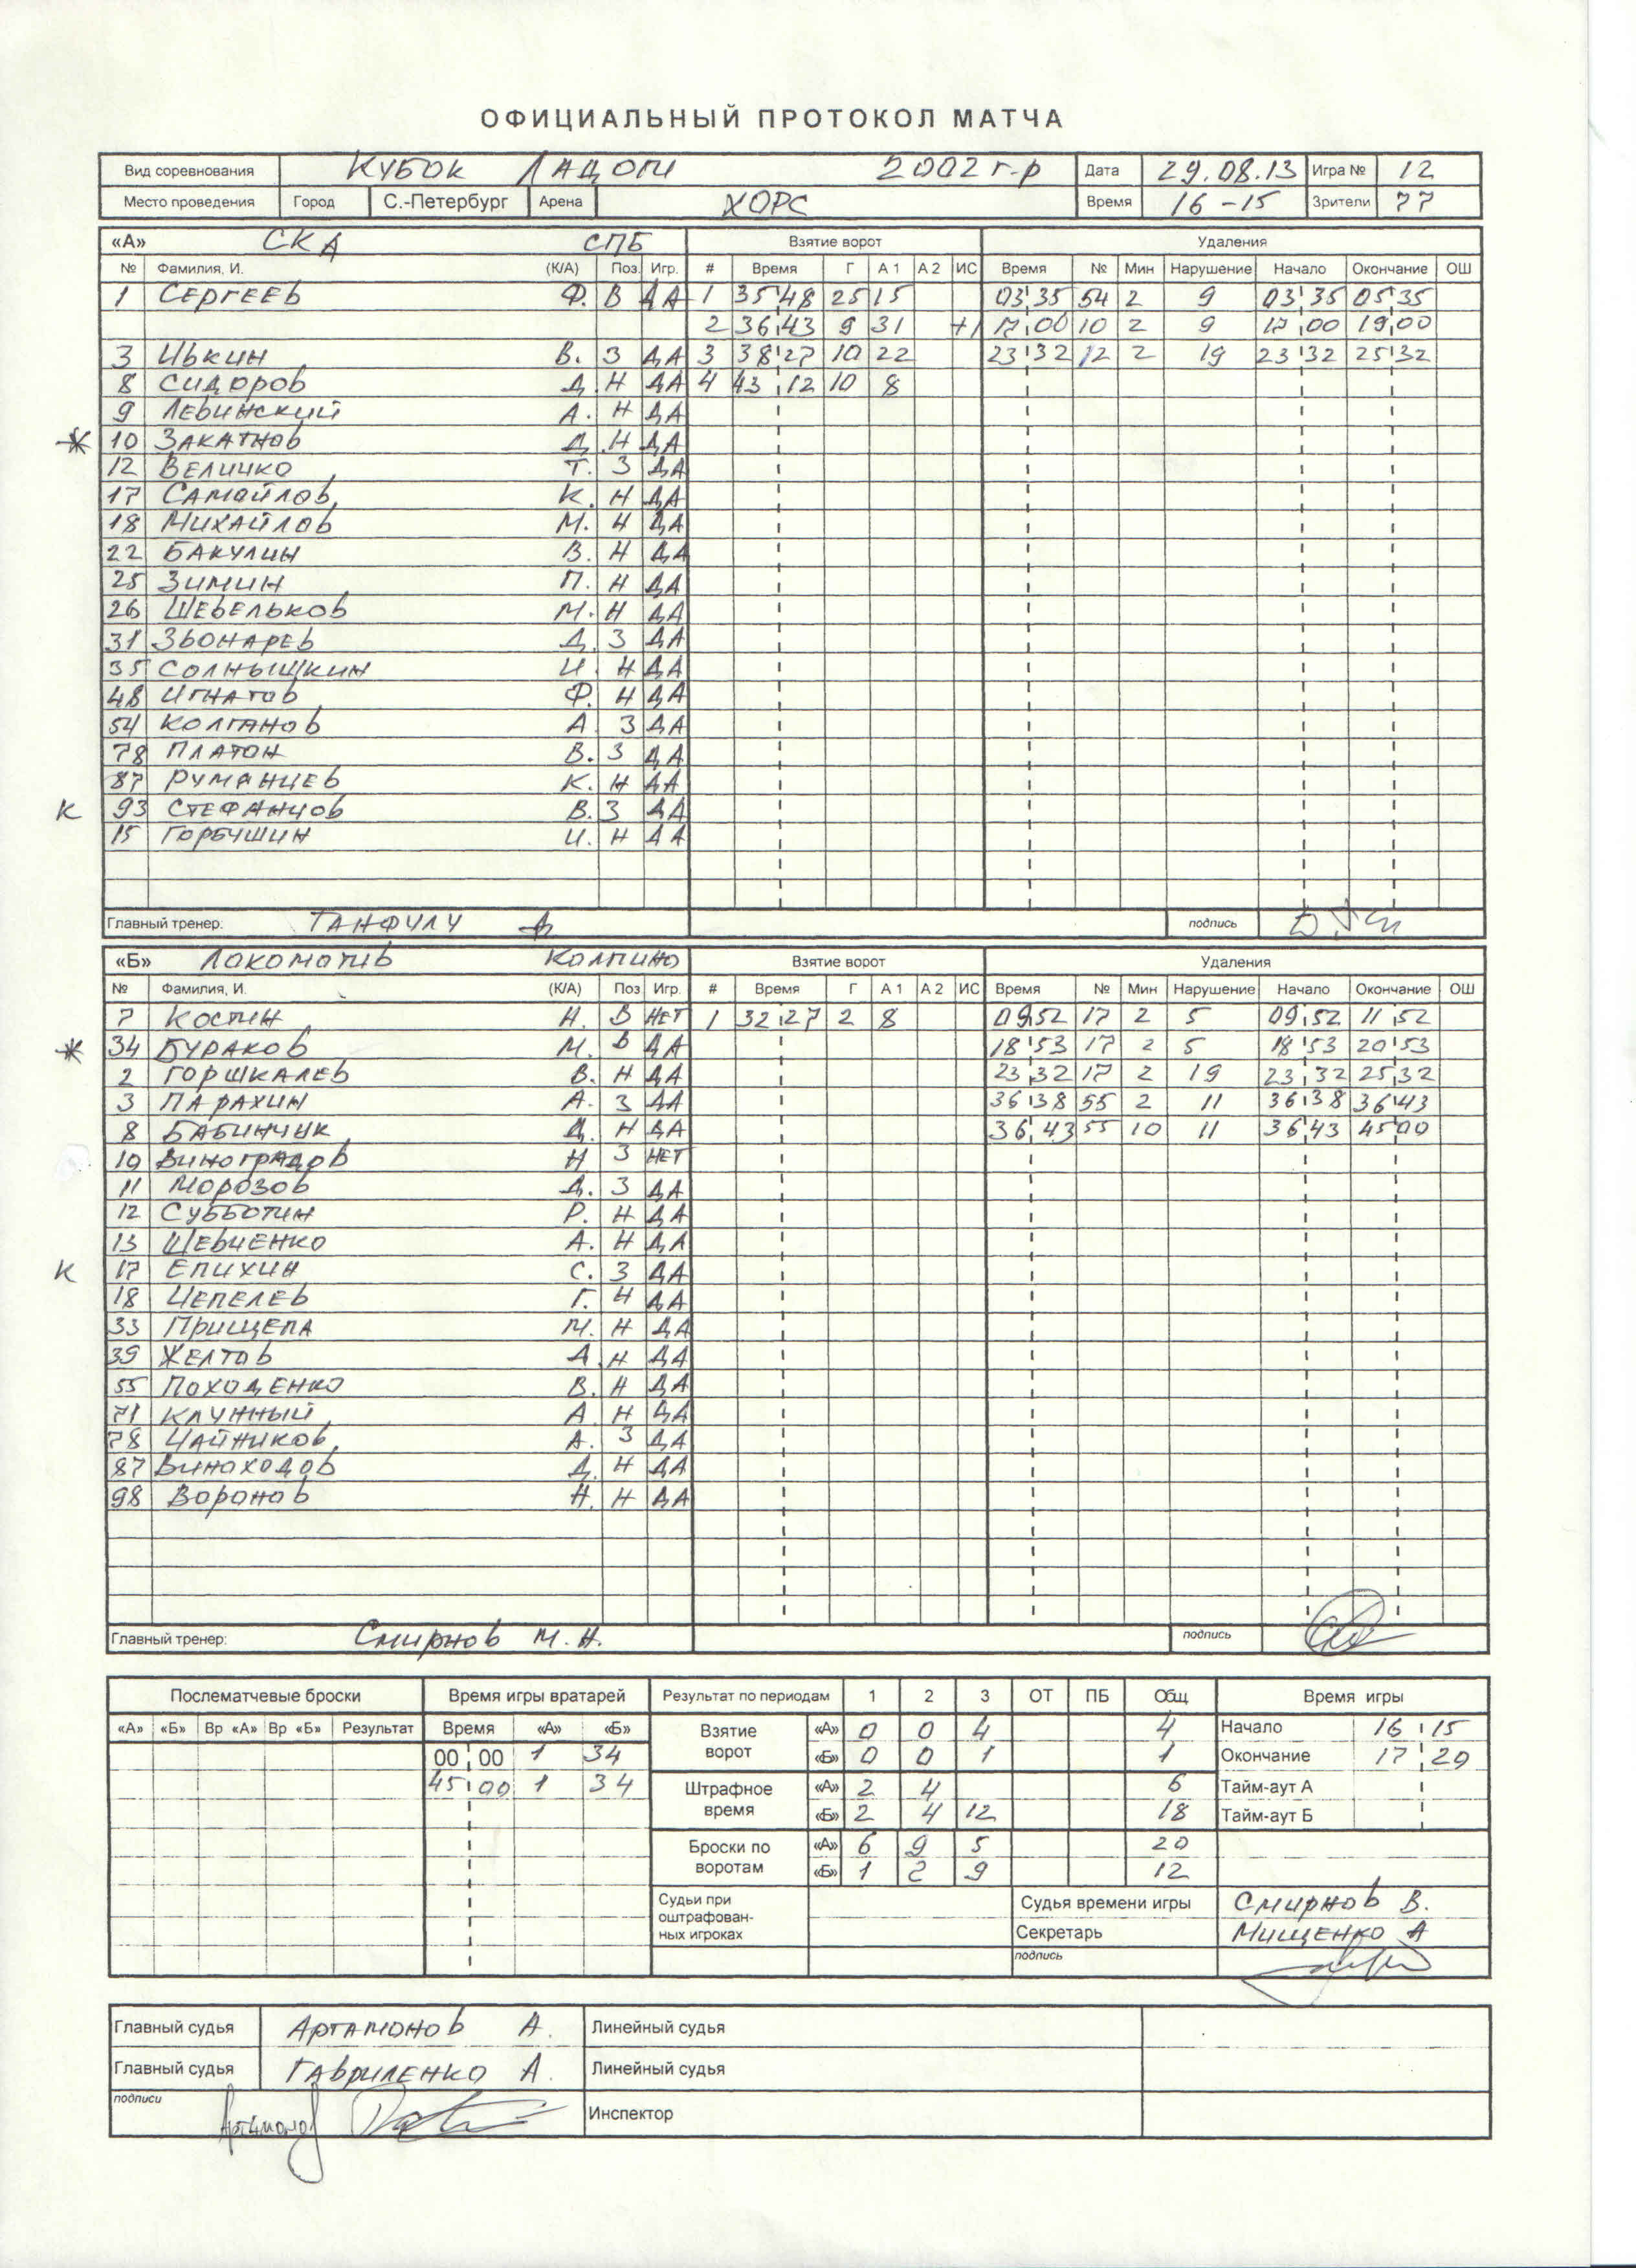 ОФИЦИАЛЬНЫЙ ПРОТОКОЛ МАТЧА
Вид соревнования КУБОК ЛАДОГИ 2002 г-р Дата 29.08.13 Игра № 12
Место проведения Город С.-Петербург Арена ХОРС Время 16-15 Зрители 77
«А» СКА СПБ Взятие ворот Удаления
№ Фамилия, И. (К/А) Поз. Игр. # Время Г А 1 А 2 ИС Время № Мин Нарушение Начало Окончание ОШ
1 СЕРГЕЕВ Ф. В ДА 1 35 48 25 15 03 35 54 2 9 03 35 05 35
2 36 43 9 31 +1 17 00 10 2 9 17 00 19 00
3 ИВКИН В. З ДА 3 38 27 10 22 23 32 12 2 19 23 32 25 32
8 СИДОРОВ Д. Н ДА 4 43 12 10 8
9 ЛЕВИНСКИЙ А. Н ДА
* 10 ЗАКАТНОВ Д. Н ДА
12 ВЕЛИЧКО Т. З ДА
17 САМОЙЛОВ К. Н ДА
18 МИХАЙЛОВ М. Н ДА
22 БАКУЛИН В. Н ДА
25 ЗИМИН П. Н ДА
26 ШЕВЕЛЬКОВ М. Н ДА
31 ЗВОНАРЕВ Д. З ДА
35 СОЛНЫШКИН И. Н ДА
48 ИГНАТОВ Ф. Н ДА
54 КОЛГАНОВ А З ДА
78 ПЛАТОН В. З ДА
87 РУМЯНЦЕВ К. Н ДА
К 93 СТЕФАНЦОВ В. З ДА
15 ГОРБУШИН И. Н ДА
Главный тренер: подпись
«Б» ЛОКОМОТИВ КОЛПИНО Взятие ворот Удаления
№ Фамилия, И. (К/А) Поз Игр. # Время Г А 1 А 2 ИС Время № Мин Нарушение Начало Окончание ОШ
7 КОСТИН Н. В НЕТ 1 32 27 2 8 09 52 17 2 5 09 52 11 52
* 34 БУРАКОВ М. В ДА 18 53 17 2 5 18 53 20 53
2 ГОРШКАЛЕВ В. Н ДА 23 32 17 2 19 23 32 25 32
3 ПАРАХИН А. З ДА 36 38 55 2 11 36 38 36 43
8 БАБИНЧУК Д. Н ДА 36 43 55 10 11 36 43 45 00
10 ВИНОГРАДОВ Н З НЕТ
11 МОРОЗОВ Д. З ДА
12 СУББОТИН Р. Н ДА
13 ШЕВЧЕНКО А. Н ДА
К 17 ЕПИХИН С. З ДА
18 ЧЕПЕЛЕВ Г. Н ДА
33 ПРИЩЕПА М. Н ДА
39 ЖЕЛТОВ А. Н ДА
55 ПОХОДЕНКО В. Н ДА
71 КЛУЖНЫЙ А Н ДА
78 ЧАЙНИКОВ А. З ДА
87 ВИНОХОДОВ Д. Н ДА
98 ВОРОНОВ Н. Н ДА
Главный тренер: Смирнов М. Н. подпись
Послематчевые броски Время игры вратарей Результат по периодам 1 2 3 ОТ ПБ Общ Время игры
«А» «Б» Вр «А» Вр «Б» Результат Время «А» «Б» Взятие ворот «А» 0 0 4 4 Начало 16 15
00 00 1 34 «Б» 0 0 1 1 Окончание 17 29
45 00 1 34 Штрафное время «А» 2 4 6 Тайм-аут А
«Б» 2 4 12 18 Тайм-аут Б
Броски по воротам «А» 6 9 5 20
«Б» 1 2 9 12
Судьи при оштрафован- ных игроках Судья времени игры СМИРНОВ В.
Секретарь МИЩЕНКО А
подпись
Главный судья АРТАМОНОВ А. Линейный судья
Главный судья ГАВРИЛЕНКО А. Линейный судья
подписи Инспектор